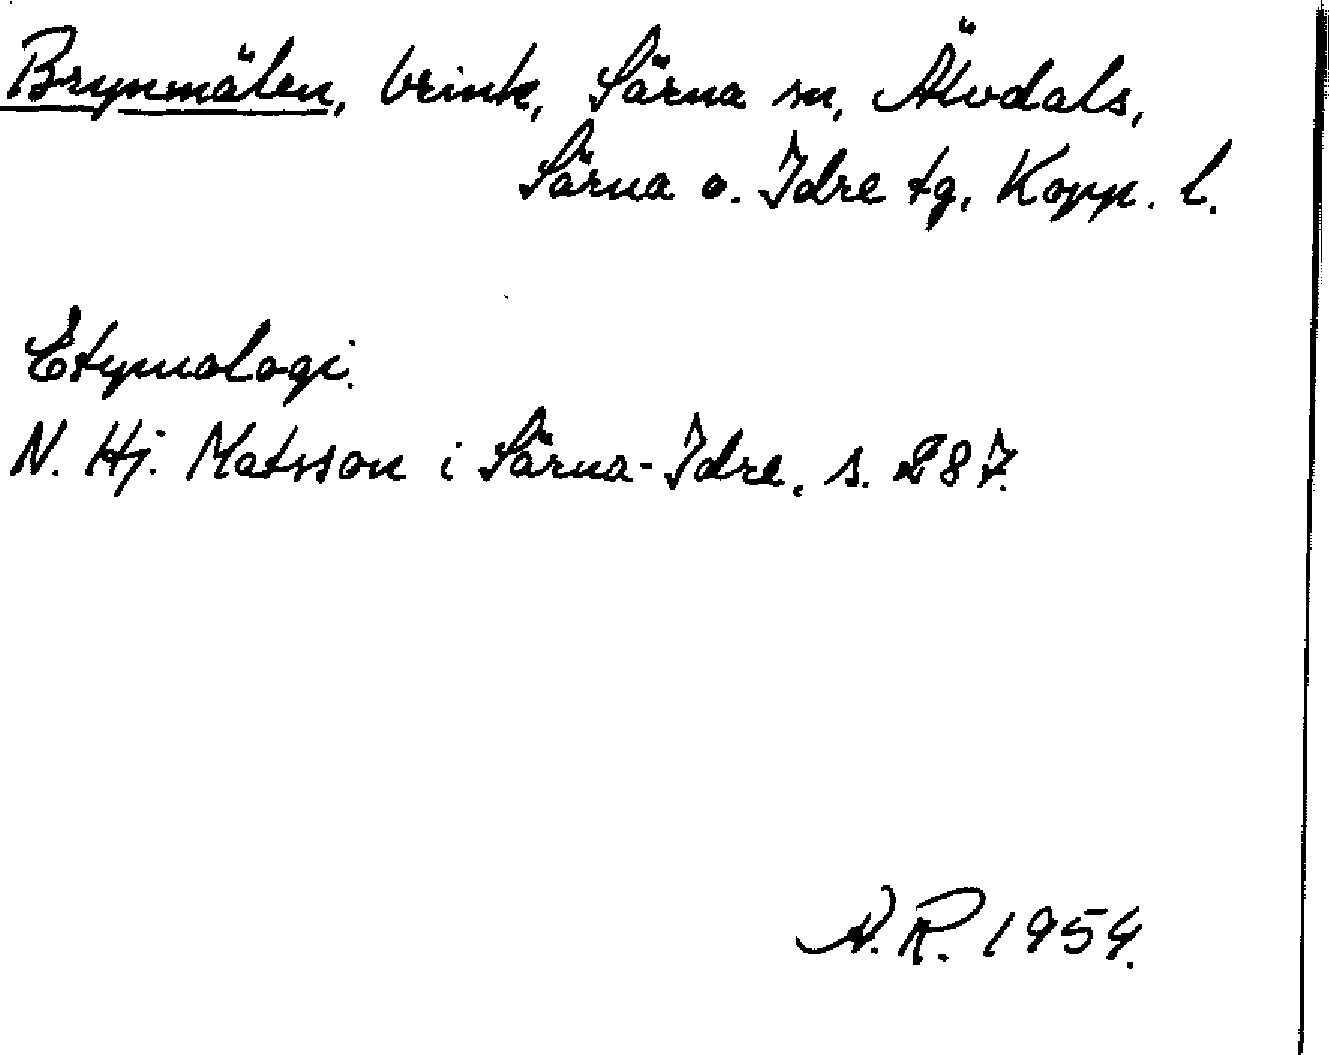 Brynmälen, brink, Särna sn, Älvdals,
Särna o. Idre tg, Kopp. l.
Etymologi.
N. Hj. Matsson i Särna-Idre, s. 287.
N. R. 1954.